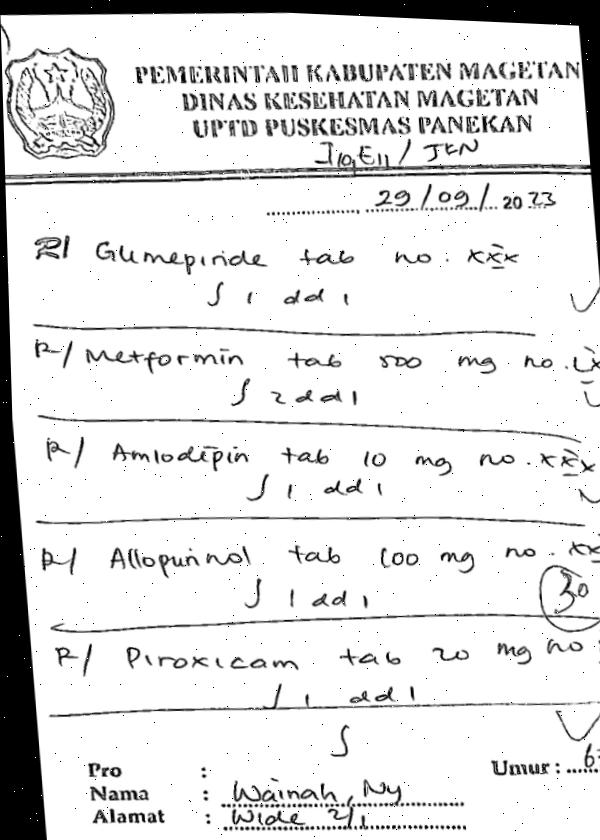 PEMERINTAH KABUPATEN MAGETAN
DINAS KESEHATAN MAGETAN
UPTD PUSKESMAS PANEKAN
29/09/2023
R/ Glimepiride tab no. xxx
∫ 1 dd 1
R/ Metformin tab 500 mg no. Lx
∫ 2 dd 1
R/ Amlodipin tab 10 mg no. xxx
∫ 1 dd 1
R/ Allopurinol tab 100 mg no. xx
∫ 1 dd 1
30
R/ Piroxicam tab 20 mg no
∫ 1 dd 1
∫
Pro :
Umur : 6
Nama : Wainah, Ny
Alamat : Wide 2/1